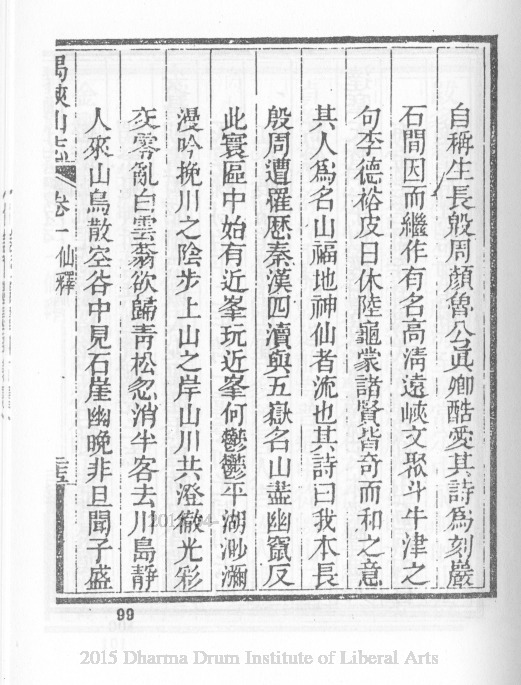 自稱生長殷周顏魯公眞卿酷愛其詩爲刻巖
石間因而繼作有名高淸遠峽文聚斗牛津之
句李德裕皮日休陸龜蒙諸賢皆奇而和之意
其人爲名山福地神仙者流也其詩曰我本長
殷周遭罹歷秦漢四瀆與五嶽名山盡幽竄反
此寰區中始有近峯玩近峯何鬱鬱平湖渺瀰
漫吟挽川之陰步上山之岸山川共澄徹光彩
交零亂白雲蓊欲歸靑松忽消半客去川島靜
人來山鳥散空谷中見石崖幽晚非旦聞子盛
禺峽山志
卷一仙釋
三五
99
2015 Dharma Drum Institute of Liberal Arts